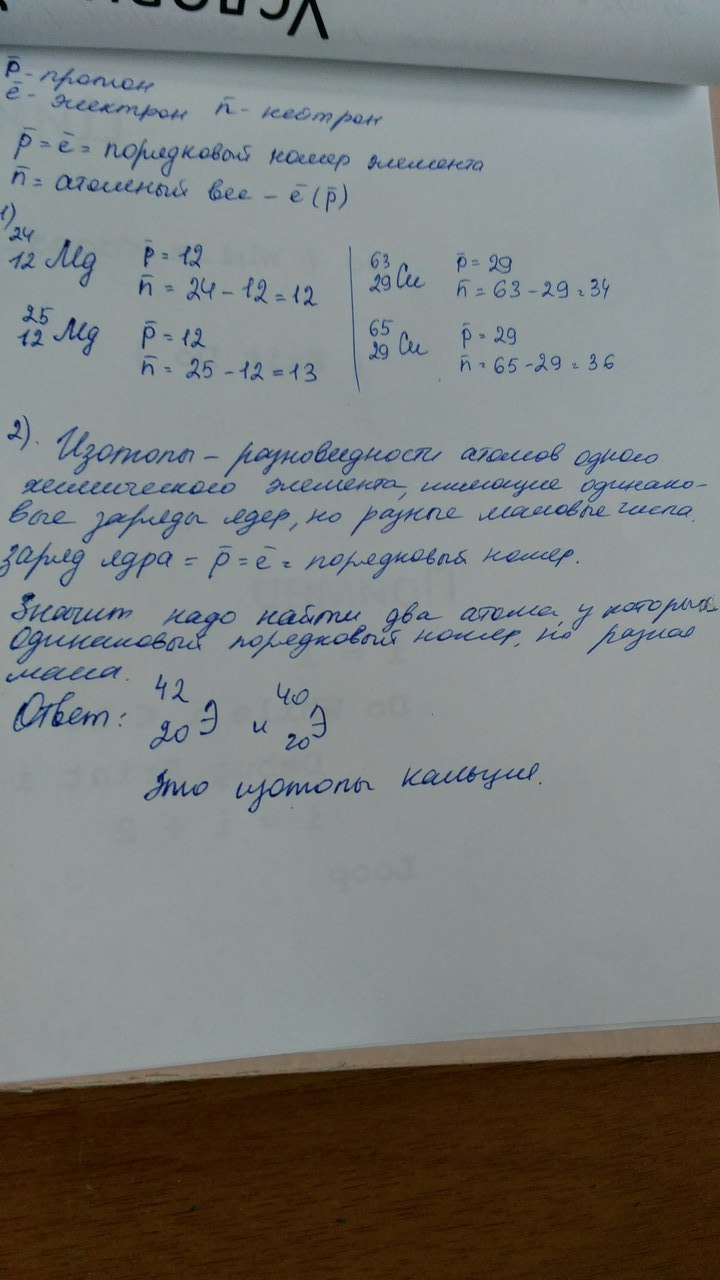 Услов
p̄ - протон
ē - электрон n̄ - нейтрон
p̄ = ē = порядковый номер элемента
n̄ = атомный вес - ē (p̄)
1)
²⁴₁₂Mg p̄ = 12
n̄ = 24 - 12 = 12
²⁵₁₂Mg p̄ = 12
n̄ = 25 - 12 = 13
⁶³₂₉Cu p̄ = 29
n̄ = 63 - 29 = 34
⁶⁵₂₉Cu p̄ = 29
n̄ = 65 - 29 = 36
2). Изотопы - разновидности атомов одного
химического элемента, имеющие одинако-
вые заряды ядер, но разные массовые числа.
Заряд ядра = p̄ = ē = порядковый номер.
Значит надо найти два атома, у которых
одинаковый порядковый номер, но разная
масса.
Ответ: ⁴²₂₀Э и ⁴⁰₂₀Э
Это изотопы кальция.
Loop